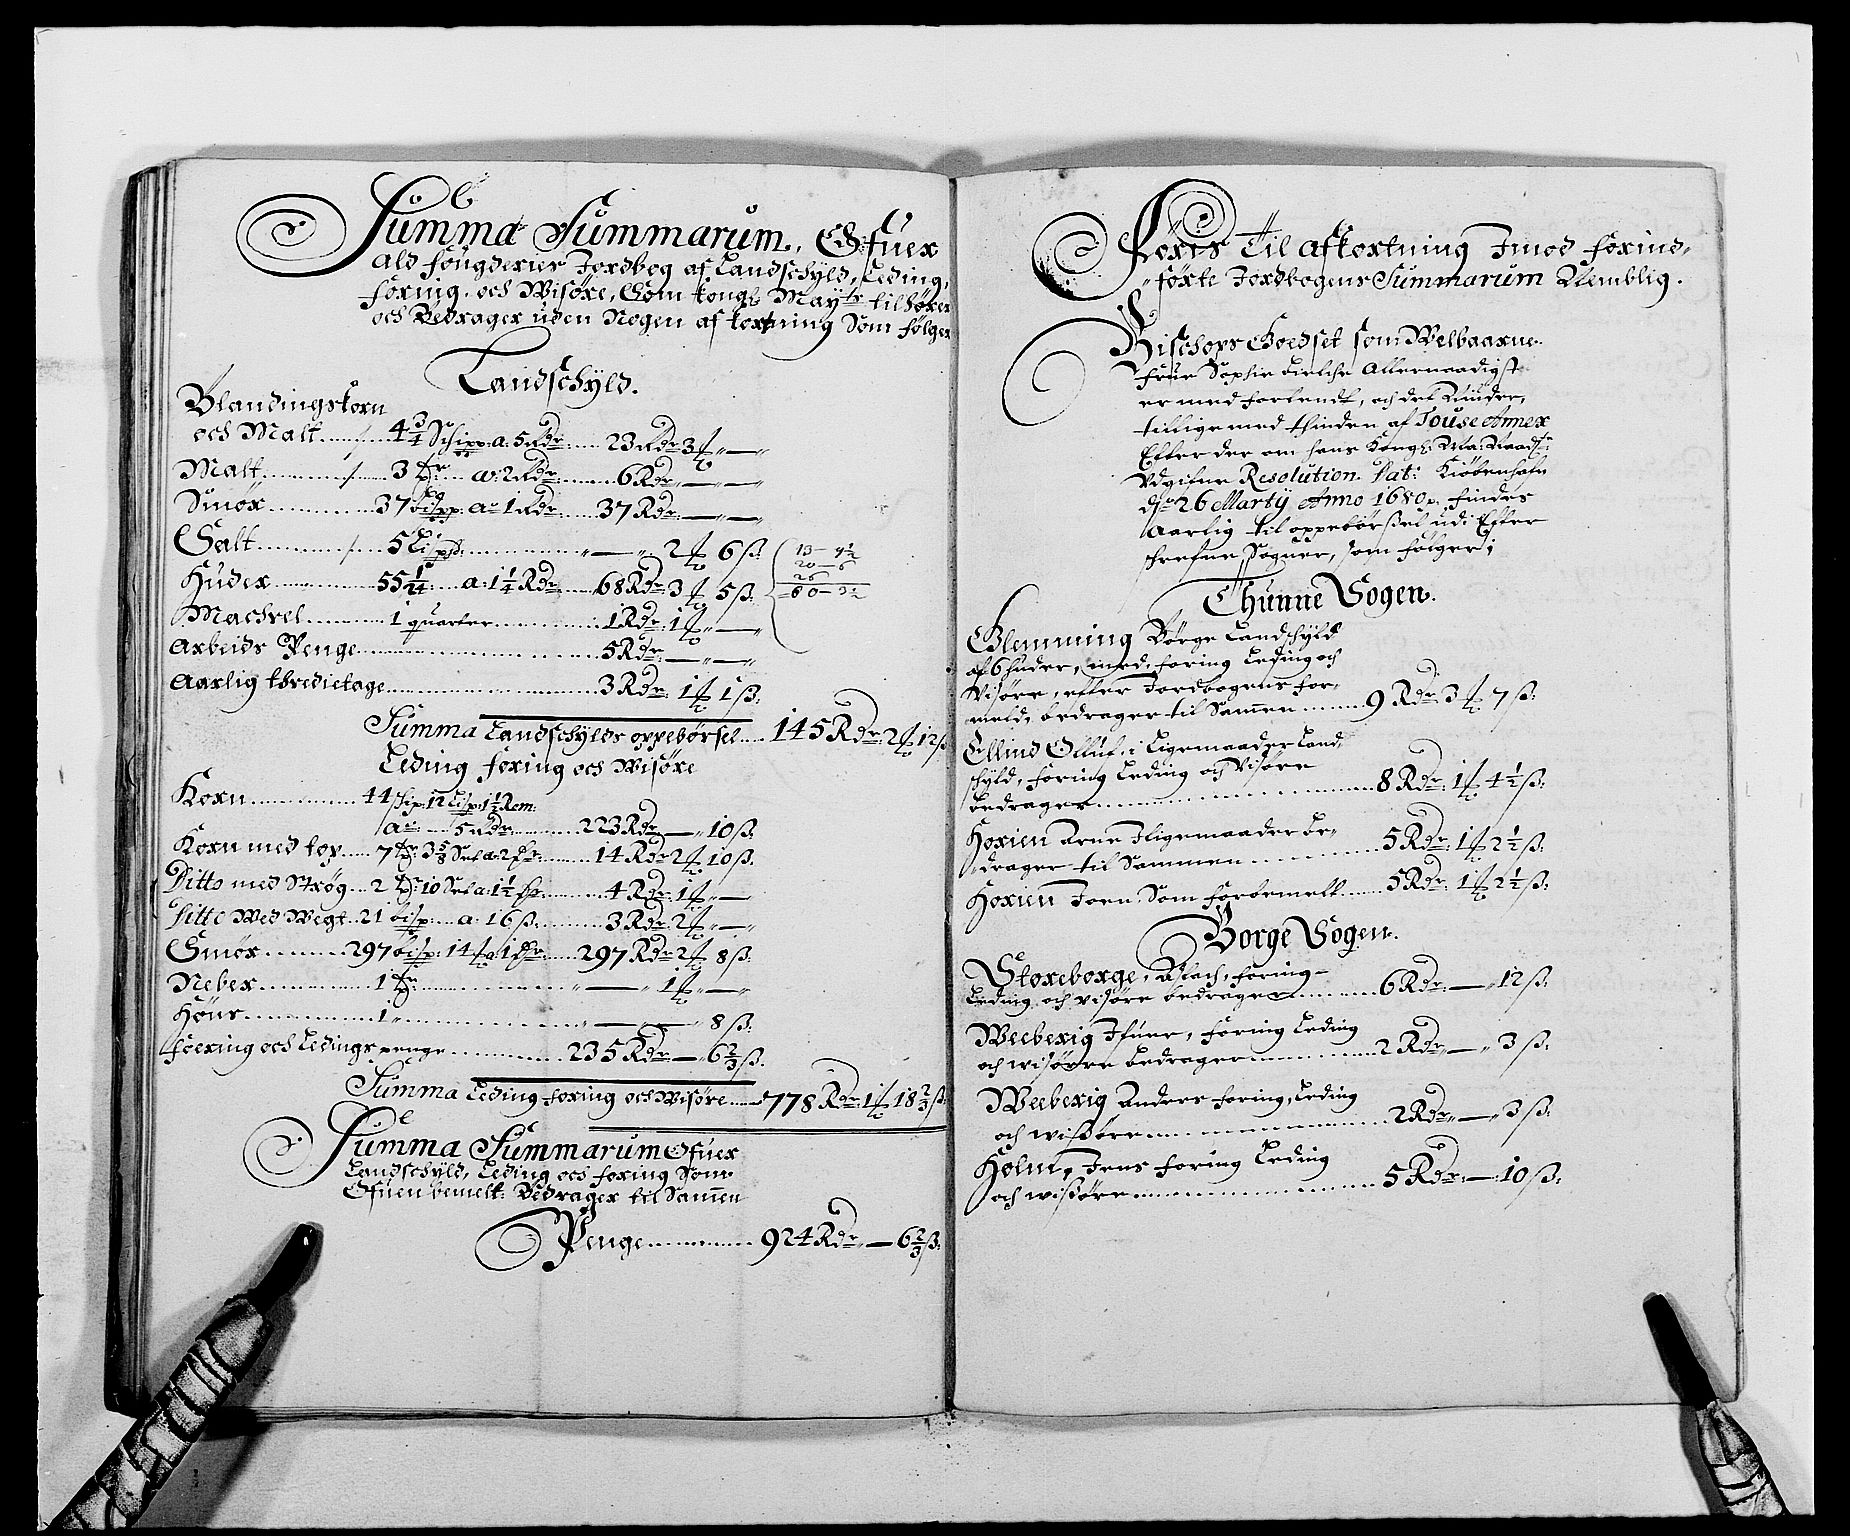 Summa Summarum, Ofuer
ald fougderies Jordbog af Landschyld, Leding,
foring, och Wisøre, Som kongl May:tz tilhører
och Bedrager uden Nogen afkortning Som følger
Landschyld.
Blandingskorn
och Malt 4 3/4 Schipp: a: 5 Rdr 23 Rdr 3 ℔ „ —
Malt 3 tr a: 2 Rdr 6 Rdr „ — „ —
Smør 37 bispp: a: 1 Rdr 37 Rdr — „ —
Salt 5 Lispd: „ — „ 2 ℔ 6 ß:
Huder 55 1/4 a: 1 1/4 Rdr 68 Rdr 3 ℔ 5 ß:
Machrel 1 quarter 1 Rdr: 1 ℔ „ —
Arbeids Penge 5 Rdr: — „ —
Aarlig thredietage 3 Rdr: 1 ℔ 1 ß:
13 – 9 1/2
20 – 6
26
60 – 3 1/2
Summa Landschylds oppebørsel 145 Rdr: 2 ℔ 12 ß
Leding foring och Wisøre
Korn 44 schip: 12 Lisp: 1 1/2 Rem:
a: 5 Rdr 223 Rdr — „ 10 ß:
Korn med top 7 tr: 3 5/8 Set a: 2 Rdr 14 Rdr 2 ℔ 10 ß:
Ditto med Strøg 2 tr: 10 Set a: 1 1/2 Rdr 4 Rdr 1 ℔ „ —
Ditto Med Wegt 21 bisp: a: 16 ß: 3 Rdr 2 ℔ „ —
Smør 297 bisp: 14 ℔ a 1 Rdr 297 Rdr 2 ℔ 8 ß:
Neber 1 tr „ — „ 1 ℔ „ —
Høns 1 „ „ — „ 8 ß:
foering och Ledings penge 235 Rdr — 6 2/3 ß:
Summa Leding foring och Wisøre 778 Rdr 1 ℔ 18 2/3 ß:
Summa Summarum Ofuer
Landschyld, Leding och foring Som
Ofuenbemelt: Bedrager til Samen
Penge 924 Rdr „ — 6 2/3 ß:
Føris Til afkortning Imod forind-
„ førte Jordbogens Summarum Nemblig.
Bischops Goedset som Welbaarne
frue Sophie Allernaadigst
er med forlendt, och det Kunder,
tilligemed thinden af Touse Annex
Efter den om hans Kongl: Ma:
Udgifne Resolution. Dat: Kiøbenhafn
d: 26 Martij Anno 1680 findes
Aarlig til oppebørßel udi Efter
schrefne Sogner, som følger:
Thunne Sogen.
Glemming Børge Landschyld
af 6 huder, med, foring Leding och
Wisøre, efter Jordbogens for-
meld, bedrager til Sammen 9 Rdr: 3 ℔ 7 ß:
Elling Olluf, i Ligemaader Land-
schyld, foring Leding och Wisøre
bedrager 8 Rdr: 1 ℔ 4 1/2 ß:
Horien Arne Iligemaader be-
drager til Sammen 5 Rdr: 1 ℔ 2 1/2 ß:
Horien Joen Som forbemelt 5 Rdr: 1 ℔ 2 1/2 ß:
Borge Sogen.
Storeborge, Aslach, foring
Leding och visøre bedrager 6 Rdr: — „ 12 ß:
Weeberig Ifuer, foring Leding
och wisøre bedrager 2 Rdr „ — „ 3 ß:
Weeberig Anders foring, Leding
och wissøre 2 Rdr „ — „ 3 ß:
Holm, Jens foring Leding
och wissøre 5 Rdr: — „ 10 ß: